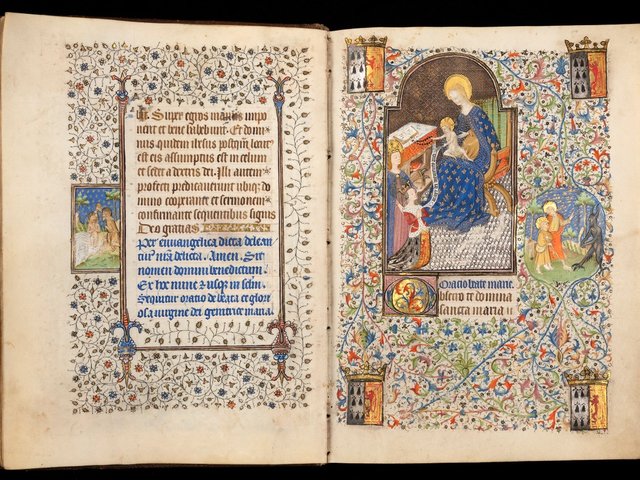 Super egros manus impo
nent et bene habebunt. Et domi
nus quidem ihesus postquam locut
est eis assumptus est in celum
et sedet a dextris dei. Illi autem
profecti predicaverunt ubiq; do
mino cooperante et sermonem
confirmante sequentibus signis
Deo gratias
Per euuangelica dicta delean
tur nr̃a delicta. Amen. Sit
nomen domini benedictum.
Ex hoc nunc et usq; in sclm.
Sequitur oratio de beata et glori
osa uirgine dei genitrice maria.
Oracio beate marie.
Obsecro te domina
sancta maria